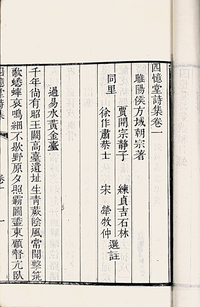 四憶堂詩集卷一
睢陽侯方域朝宗著
同里 賈開宗靜子 練貞吉石林
徐作肅恭士 宋犖牧仲 選註
過易水黃金臺
千年尚有昭王闕高臺遺址生青蕨陰風常開整飛
歌蟋蟀哀鳴細不歇野原夕照霸圖盡東顧督亢臥
四憶堂詩集 卷一 一